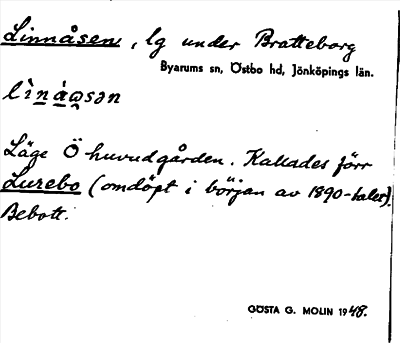 Linnåsen, lg under Bratteborg
Byarums sn, Östbo hd, Jönköpings län.
Läge Ö huvudgården. Kallades förr
Lurebo (omdöpt i början av 1890-talet).
Bebott.
GÖSTA G. MOLIN 1948.